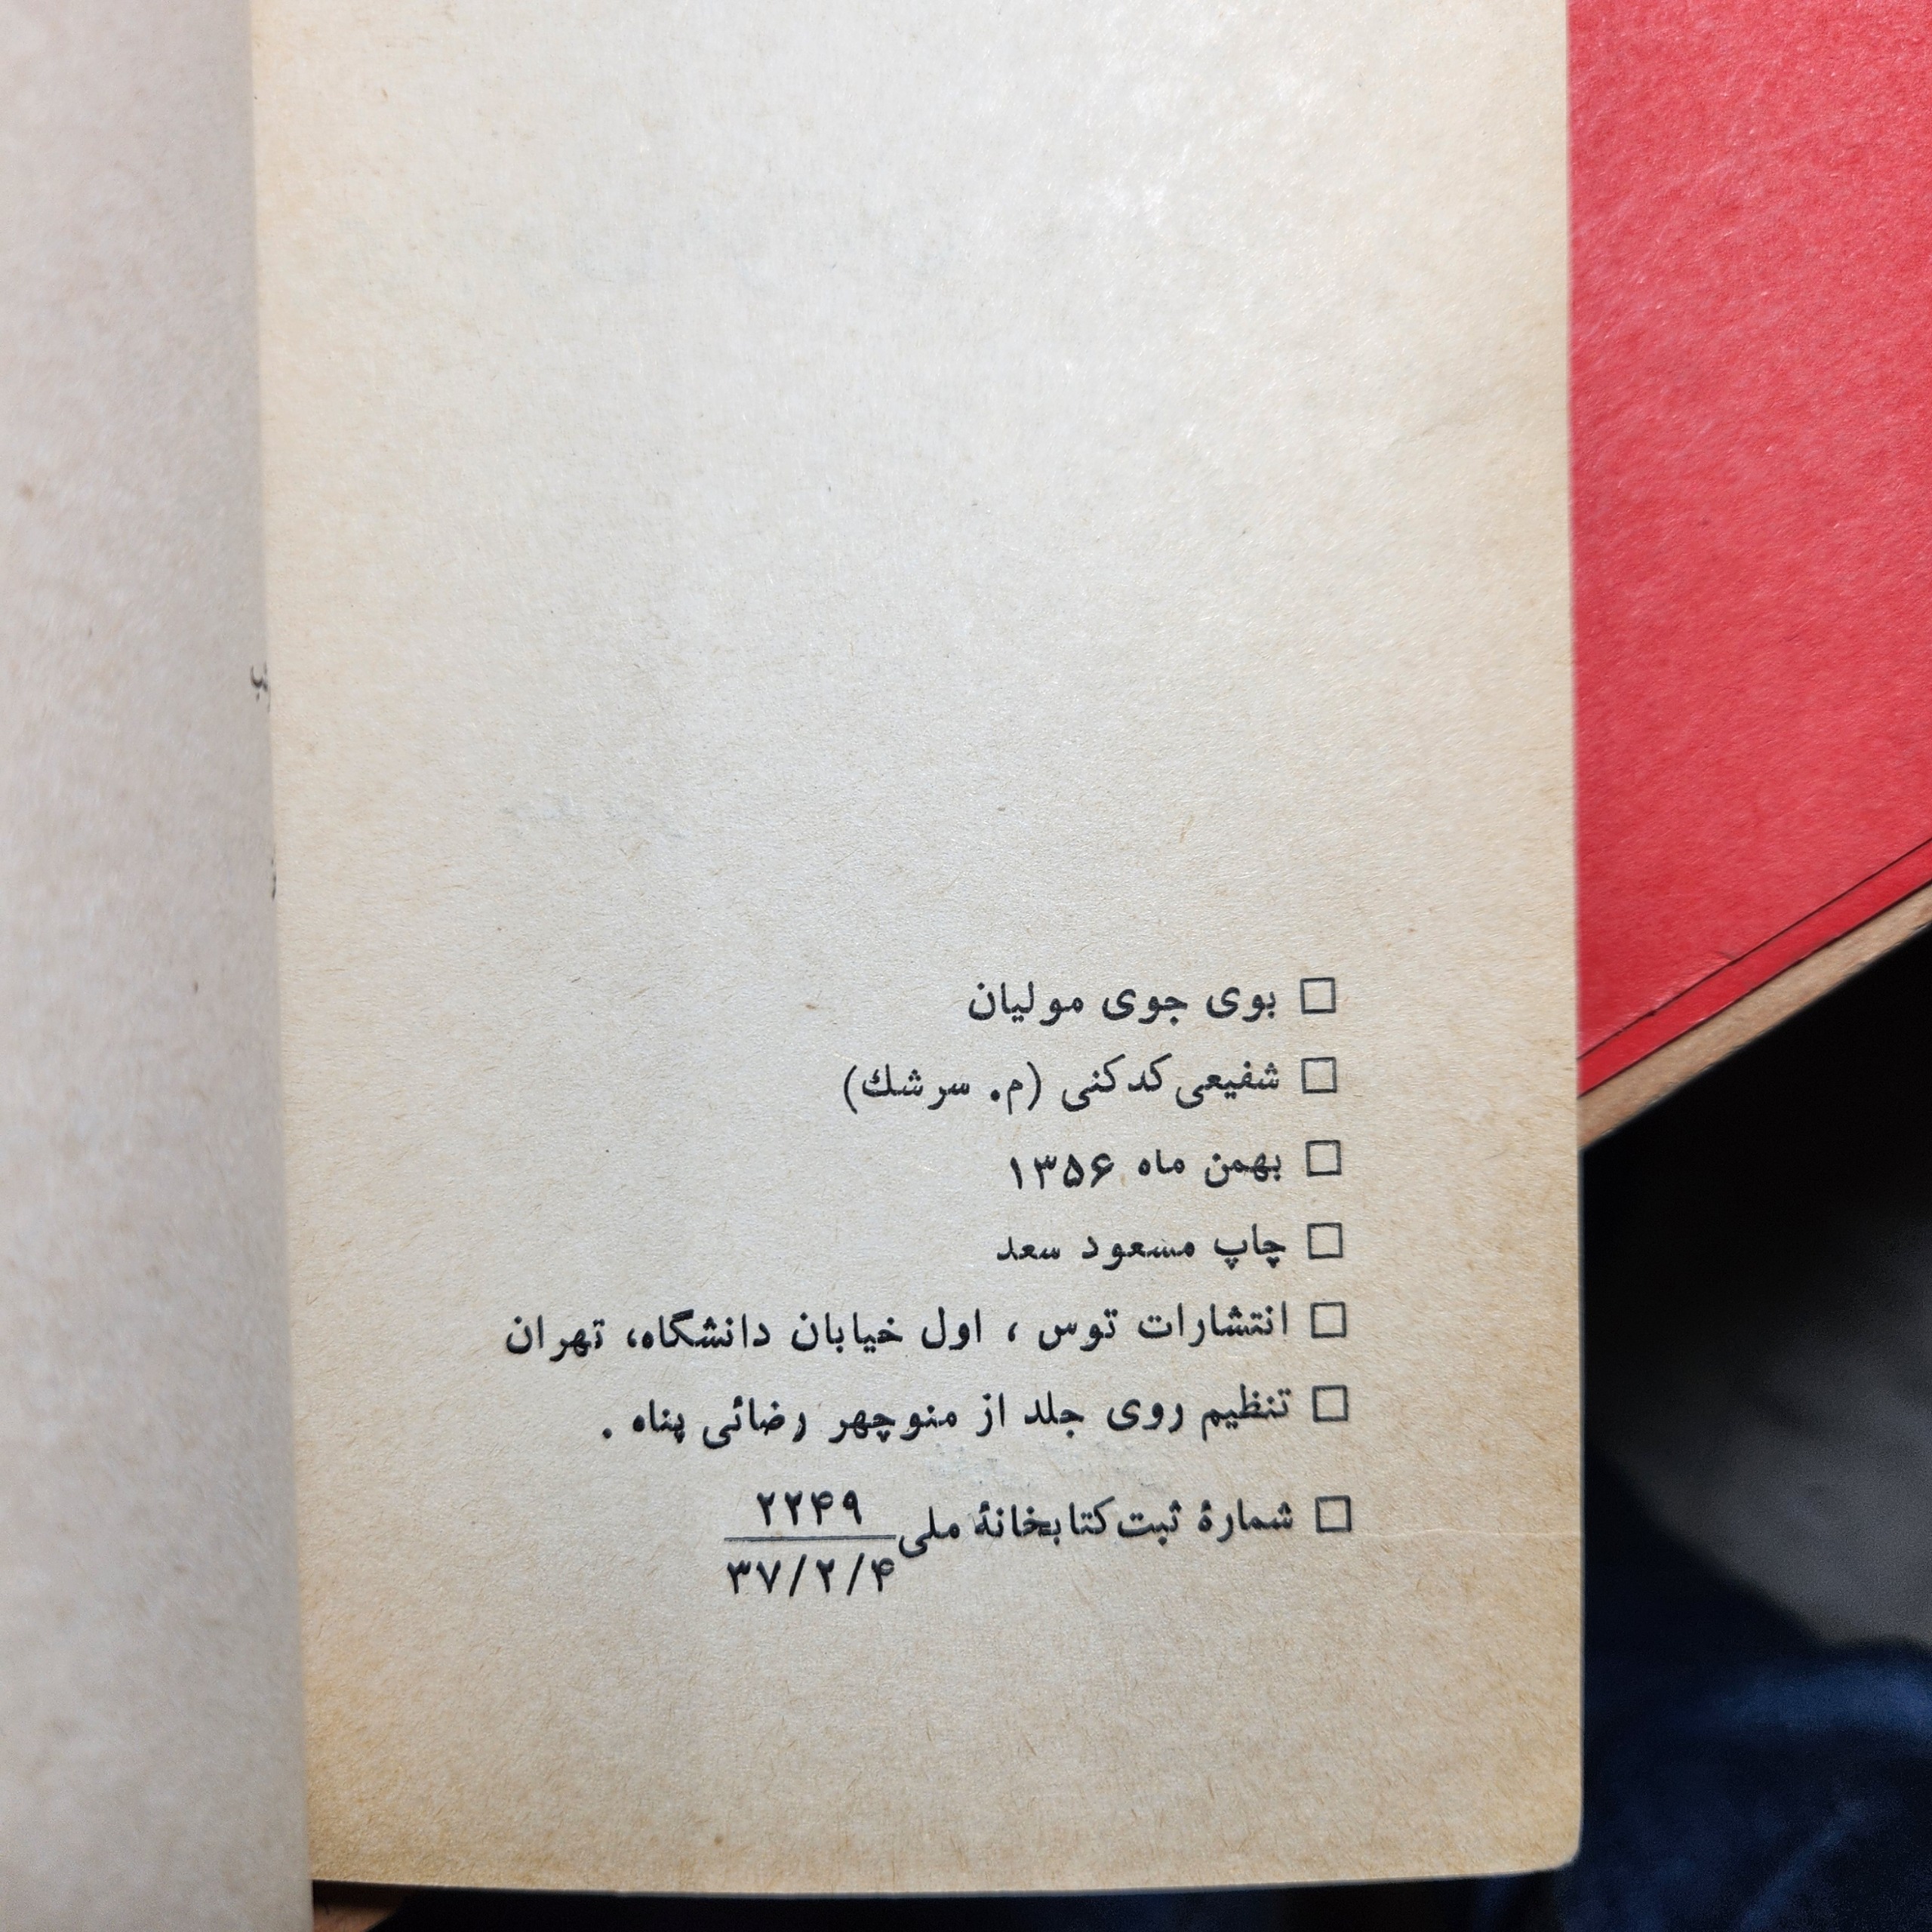 □ بوی جوی مولیان
□ شفیعی کدکنی (م. سرشك)
□ بهمن ماه ۱۳۵۶
□ چاپ مسعود سعد
□ انتشارات توس ، اول خیابان دانشگاه، تهران
□ تنظیم روی جلد از منوچهر رضائی پناه .
□ شمارهٔ ثبت کتابخانهٔ ملی ۲۲۴۹
۳۷/۲/۴